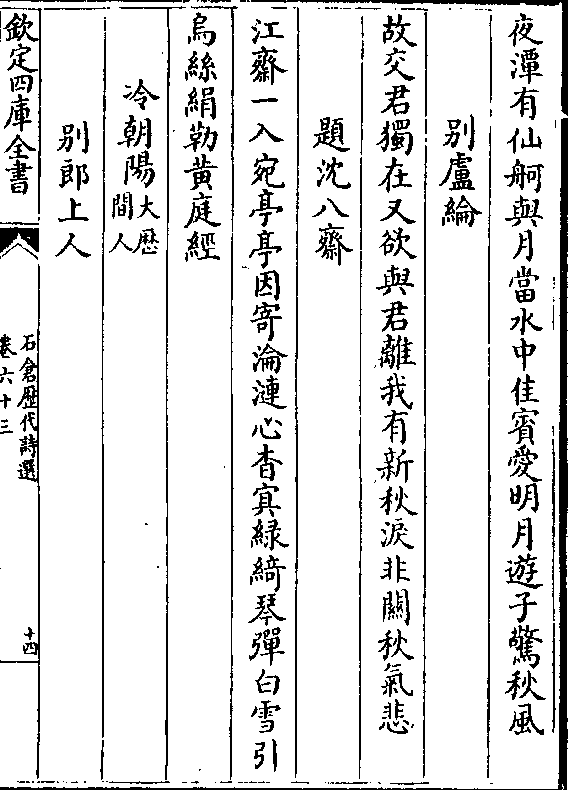 夜潭有仙舸與月當水中佳賓愛明月遊子驚秋風
別盧綸
故交君獨在又欲與君離我有新秋淚非關秋氣悲
題沈八齋
江齋一入宛亭亭因寄淪漣心杳㝠緑綺琴彈白雪引
烏絲絹勒黄庭經
冷朝陽大歴間人
别郎上人
欽定四庫全書
石倉歴代詩選
卷六十三
十四